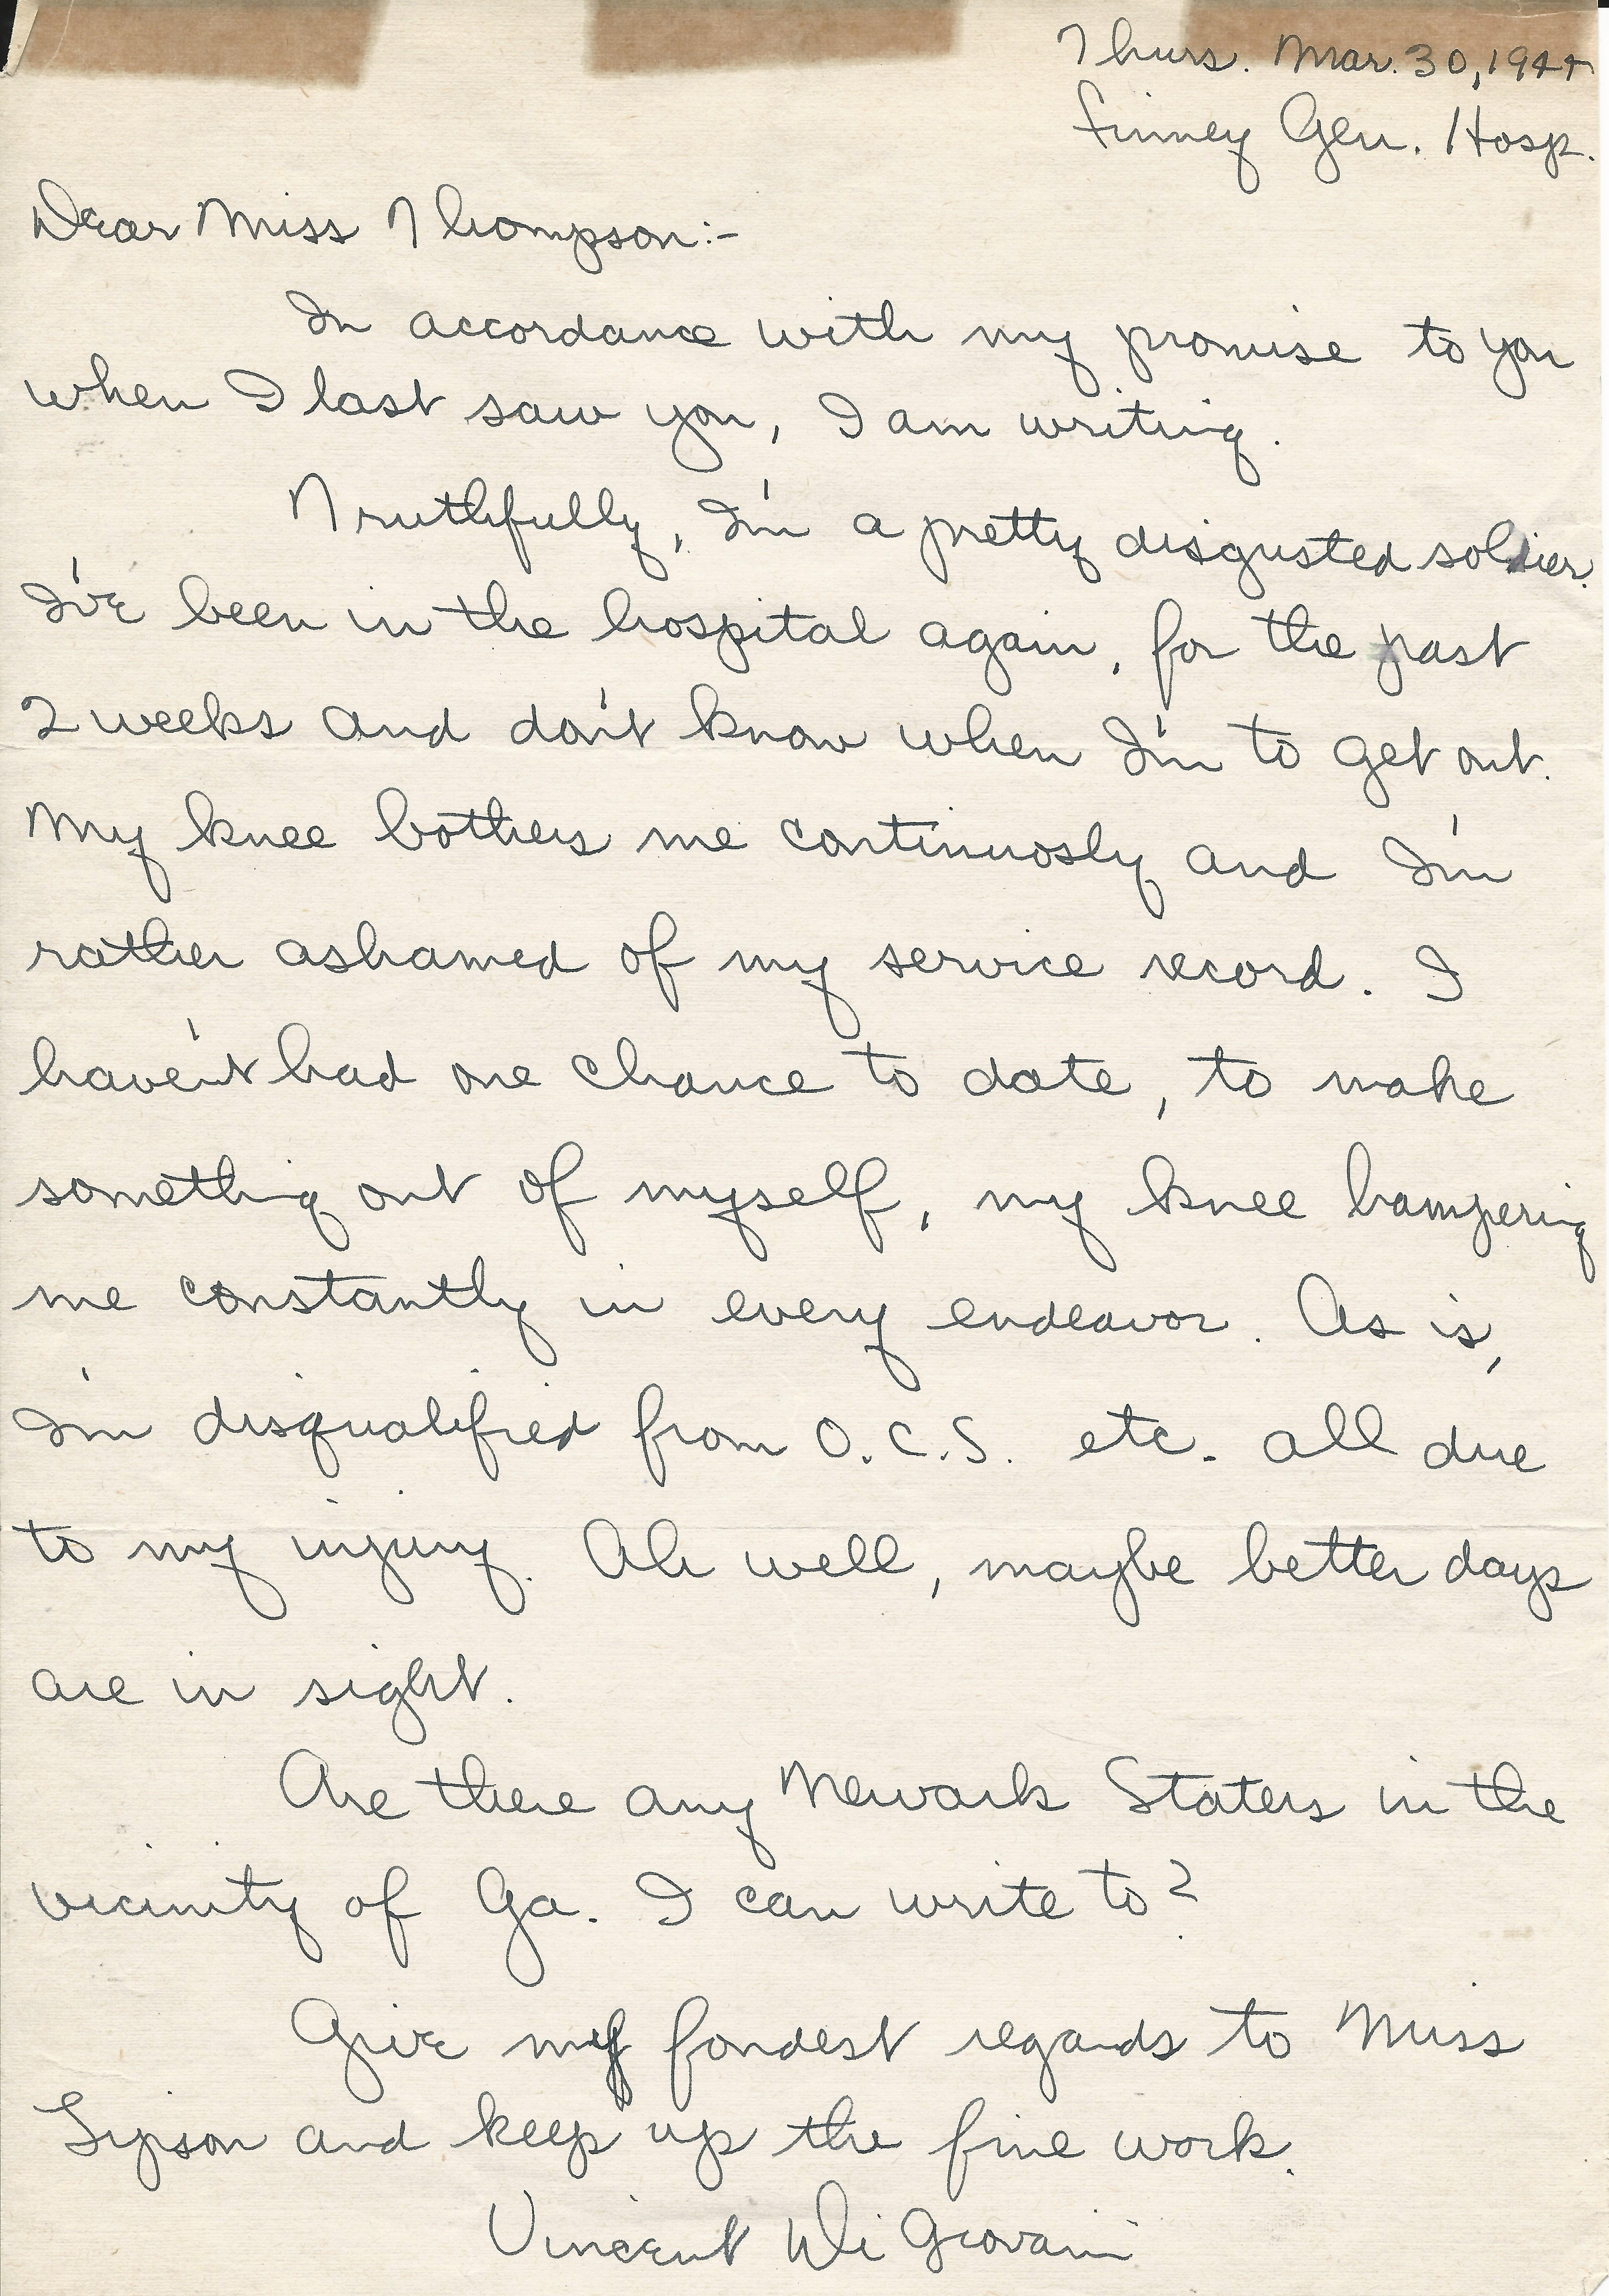 Thurs. Mar. 30, 1944
Finney Gen. Hosp.
Dear Miss Thompson:-
In accordance with my promise to you
when I last saw you, I am writing.
Truthfully, I'm a pretty disgusted soldier.
I've been in the hospital again, for the past
2 weeks and don't know when I'm to get out.
My knee bothers me continuosly and I'm
rather ashamed of my service record. I
haven't had one chance to date, to make
something out of myself, my knee hampering
me constantly in every endeavor. As is,
I'm disqualified from O.C.S. etc. all due
to my injury. Ah well, maybe better days
are in sight.
Are there any Newark Staters in the
vicinity of Ga. I can write to?
Give my fondest regards to Miss
Lipson and keep up the fine work.
Vincent Di Giovanni